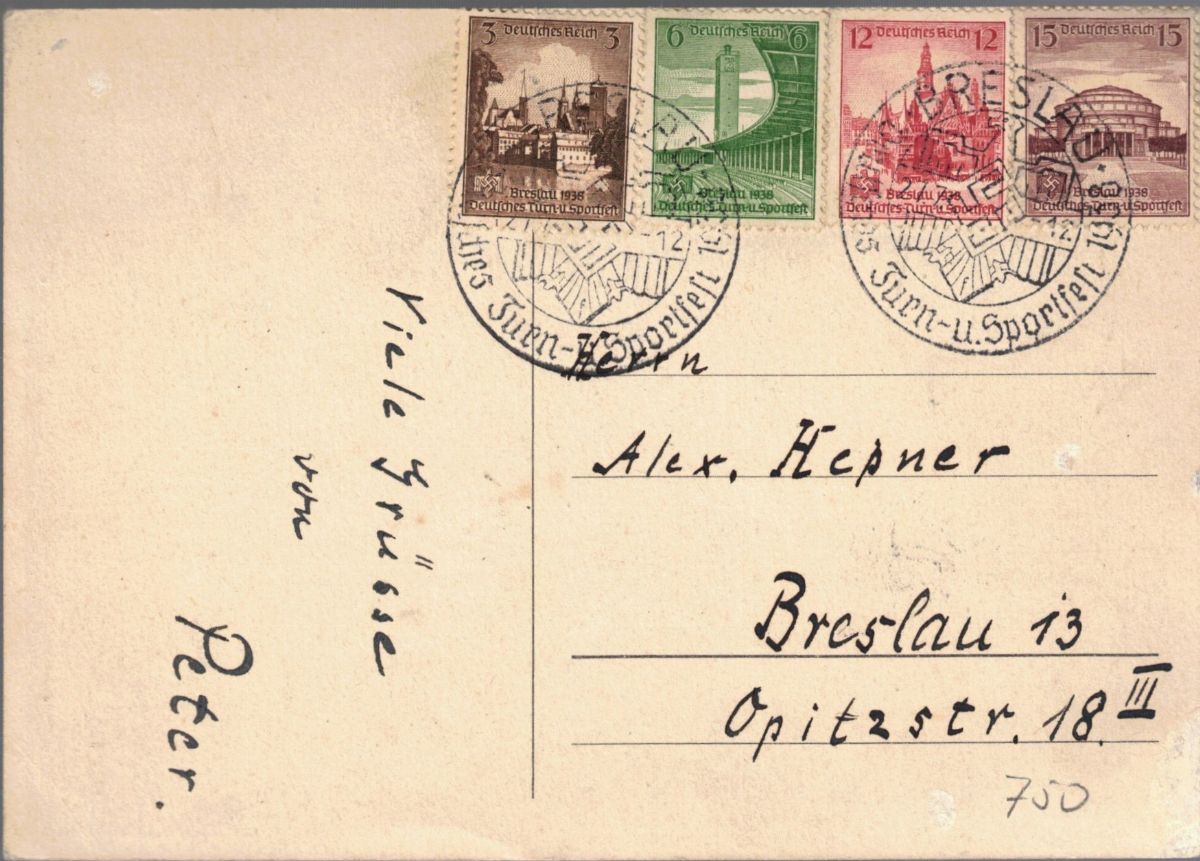 3 Deutsches Reich 3
Breslau 1938
Deutsches Turn-u.Sportfest
6 Deutsches Reich 6
Breslau 1938
Deutsches Turn-u.Sportfest
12 Deutsches Reich 12
Breslau 1938
Deutsches Turn-u.Sportfest
15 Deutsches Reich 15
Breslau 1938
Deutsches Turn-u.Sportfest
-12
Turn-u.Sportfest
BRESLAU
-12
Turn-u.Sportfest 1938
Viele Grüsse
von
Peter.
Herrn
Alex. Hepner
Breslau 13
Opitzstr. 18. III
750